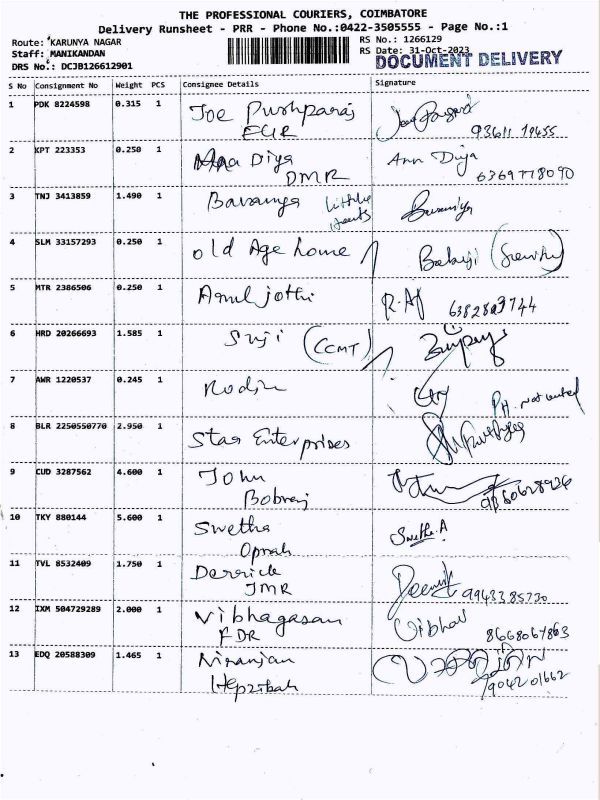 THE PROFESSIONAL COURIERS, COIMBATORE
Delivery Runsheet - PRR - Phone No.:0422-3505555 - Page No.:1
Route: KARUNYA NAGAR RS No.: 1266129
Staff: MANIKANDAN RS Date: 31-Oct-2023
DRS No.: DCJB126612901 DOCUMENT DELIVERY
S No Consignment No Weight PCS Consignee Details Signature
1 PDK 8224598 0.315 1 Joe Pushparaj
2 KPT 223353 0.250 1 Diya Ann Diya
DMR 6369778090
3 TNJ 3413859 1.490 1 Little
Hearts
4 SLM 33157293 0.250 1 old Age home Balaji
5 MTR 2386506 0.250 1 Arul jothi R.AJ
6 HRD 20266693 1.585 1 Suji (CCMT)
7 AWR 1220537 0.245 1 PH. not
8 BLR 2250550770 2.950 1 Star Enterprises
9 CUD 3287562 4.600 1 John
Bobraj
10 TKY 880144 5.600 1 Swetha Swetha.A
Oprah
11 TVL 8532409 1.750 1 Derrick
JMR 9943385730
12 IXM 504729289 2.000 1 Vibhagasan Vibhav
FDR 8668067863
13 EDQ 20588309 1.465 1 Niranjan
Hepzibah 9042 01662